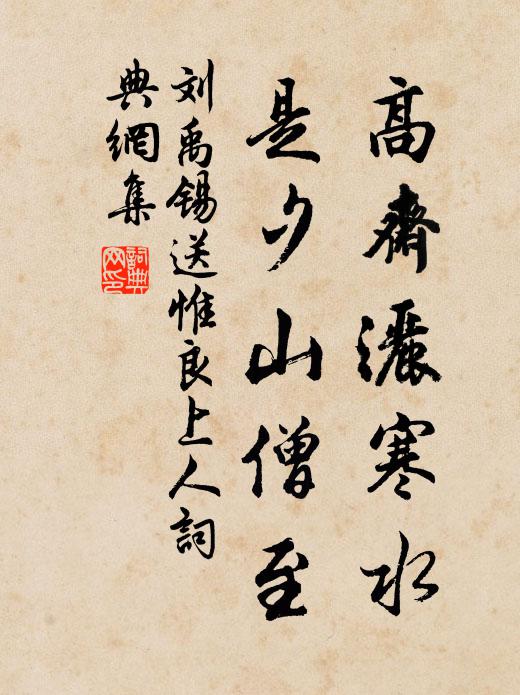 高齋灑寒水
是夕山僧至
刘禹锡送惟良上人詞
典網集
詞典網印